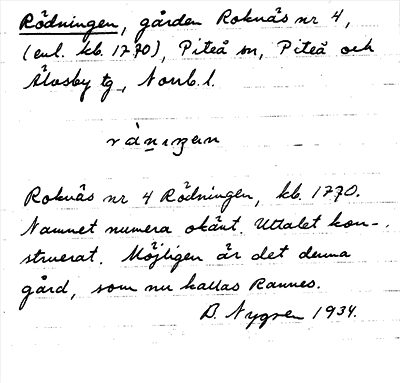 Rödningen, gården Roknäs nr 4,
(enl. kb. 1770), Piteå sn, Piteå och
Älvsby tg, Norrb. l.
Roknäs nr 4 Rödningen, kb. 1770.
Namnet numera okänt. Uttalet kon-
struerat. Möjligen är det denna
gård, som nu kallas Rannes.
D. Nygren 1934.